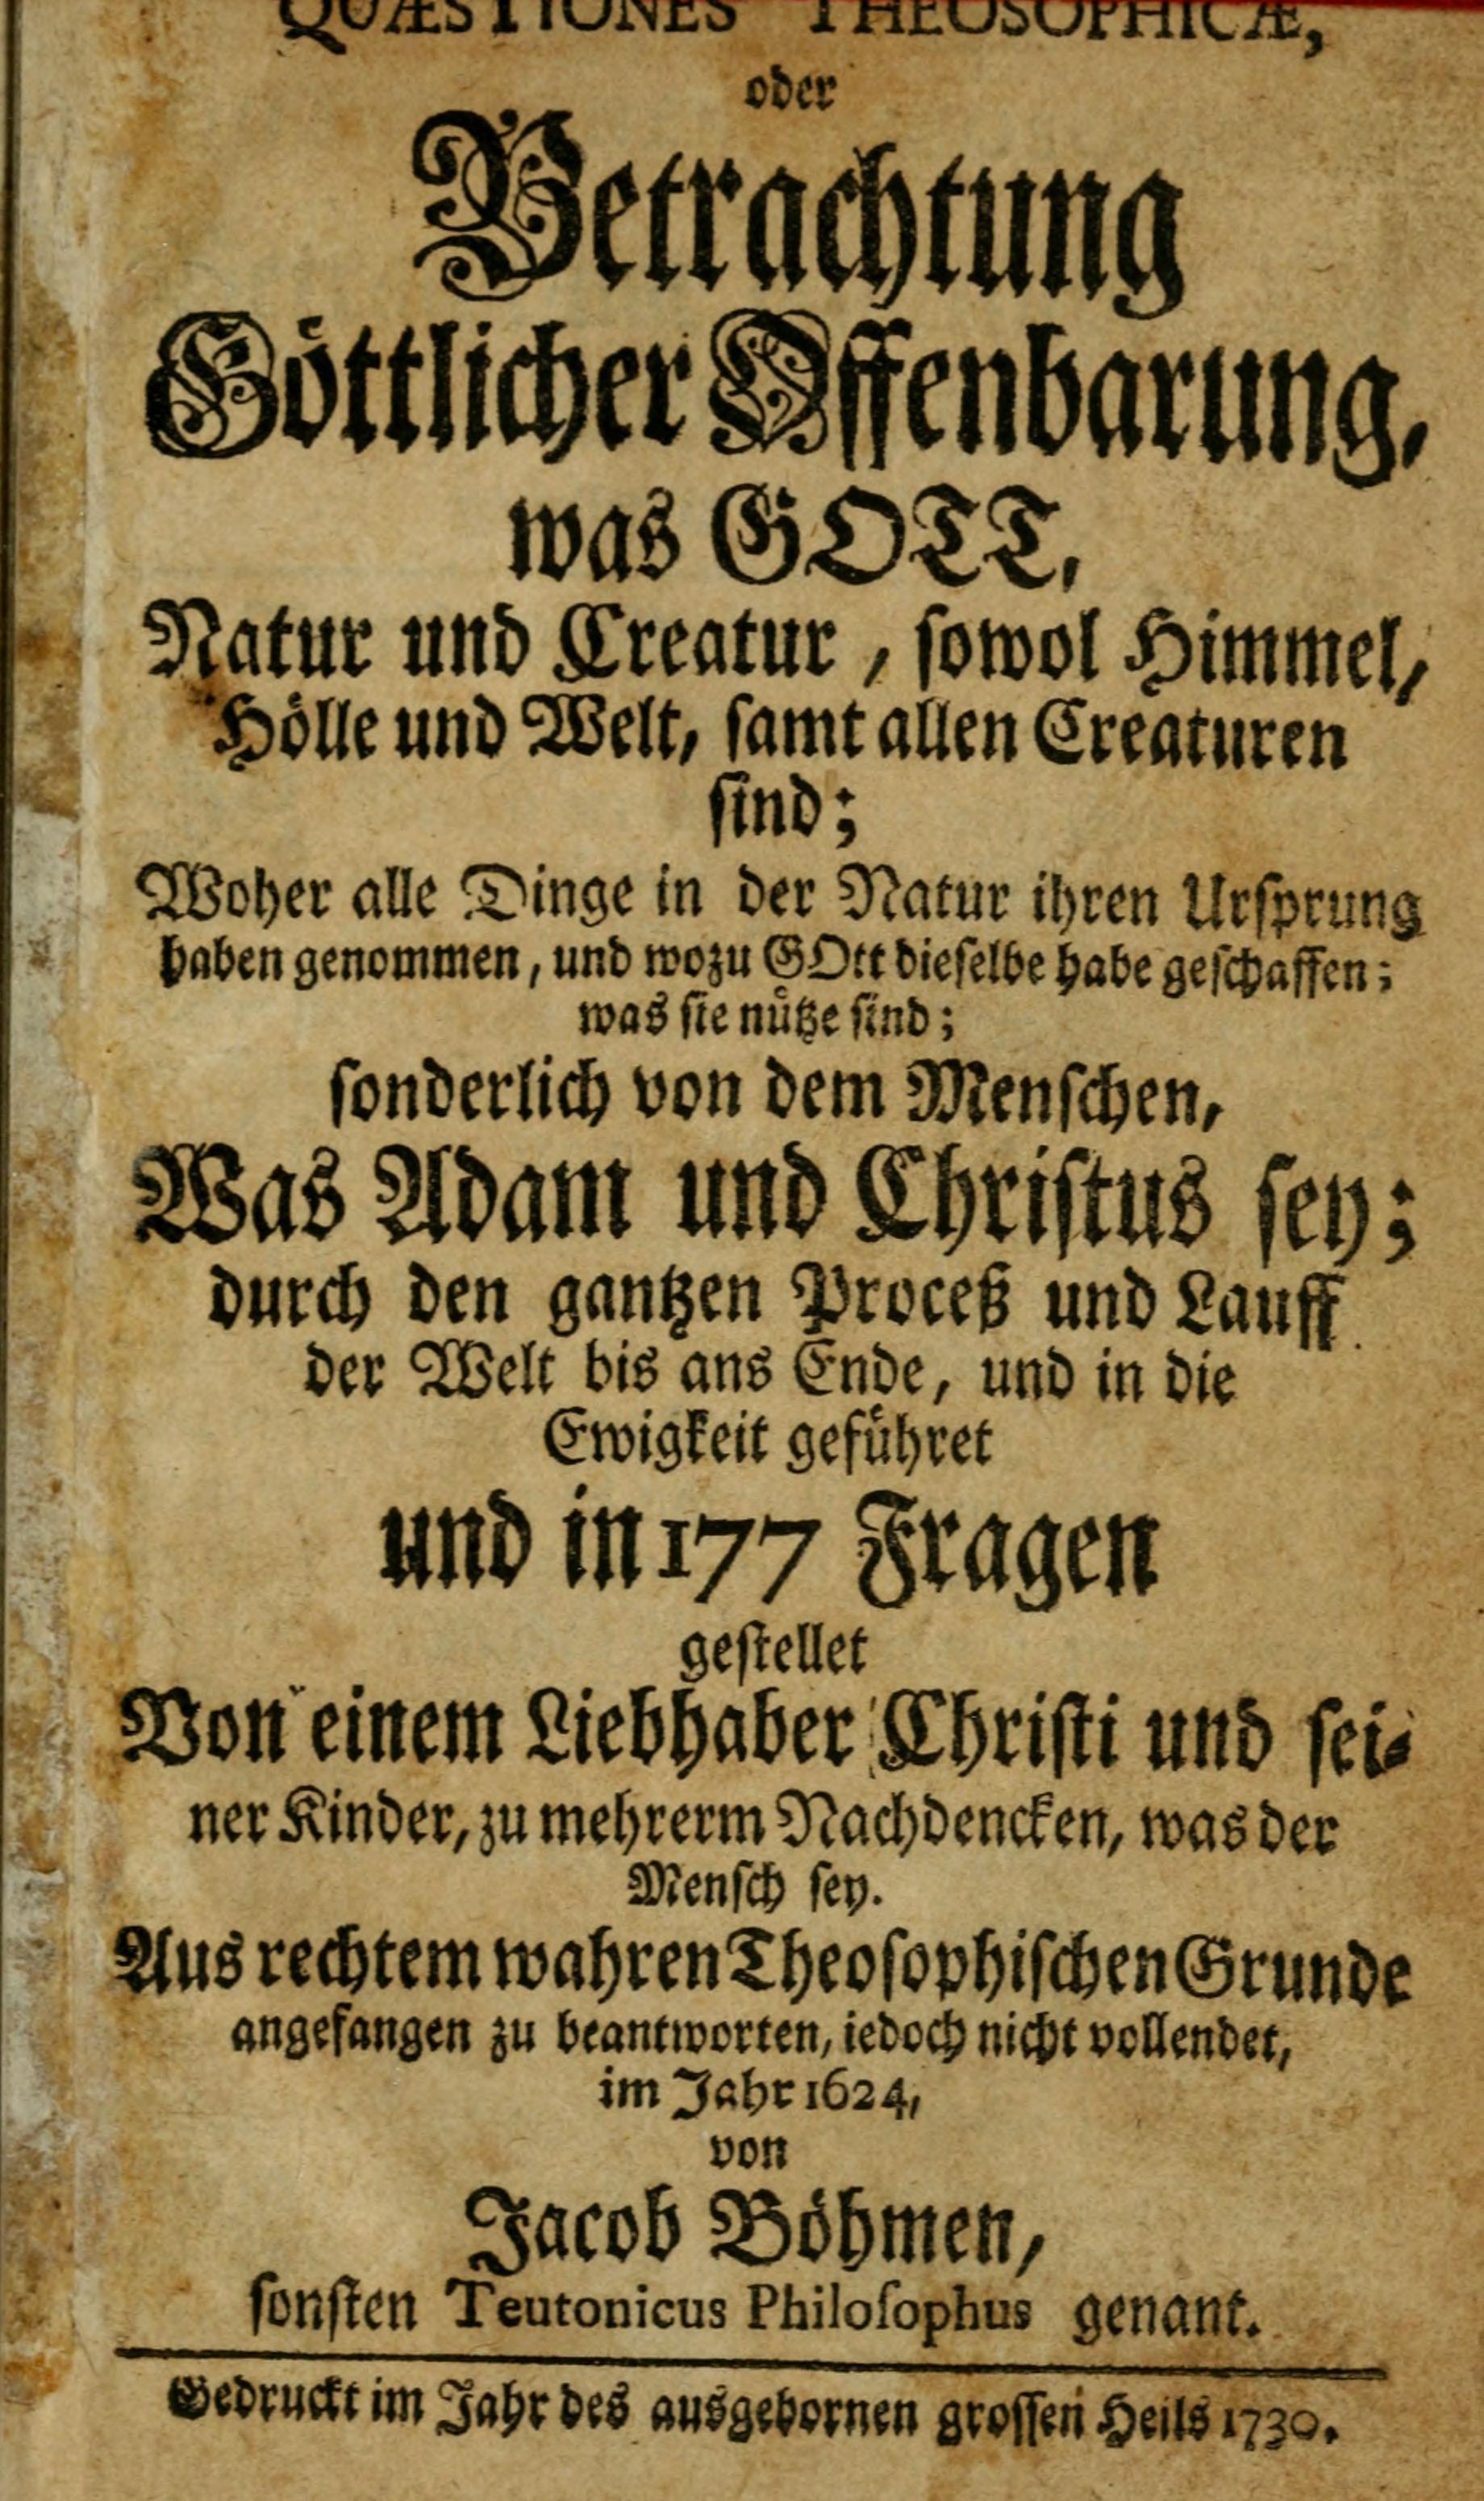 QUÆSTIONES THEOSOPHICÆ,
oder
Betrachtung
Göttlicher Offenbarung,
was GOTT,
Natur und Creatur, sowol Himmel,
Hölle und Welt, samt allen Creaturen
sind;
Woher alle Dinge in der Natur ihren Ursprung
haben genommen, und wozu GOtt dieselbe habe geschaffen;
was sie nütze sind;
sonderlich von dem Menschen,
Was Adam und Christus sey;
durch den gantzen Proceß und Lauff
der Welt bis ans Ende, und in die
Ewigkeit geführet
und in 177 Fragen
gestellet
Von einem Liebhaber Christi und sei-
ner Kinder, zu mehrerm Nachdencken, was der
Mensch sey.
Aus rechtem wahren Theosophischen Grunde
angefangen zu beantworten, iedoch nicht vollendet,
im Jahr 1624,
von
Jacob Böhmen,
sonsten Teutonicus Philosophus genant.
Gedruckt im Jahr des ausgebornen grossen Heils 1730.